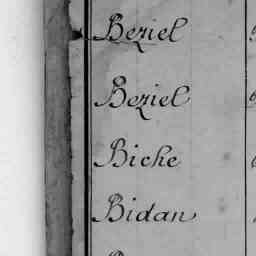 Beziel
Beziel
Biche
Bidan